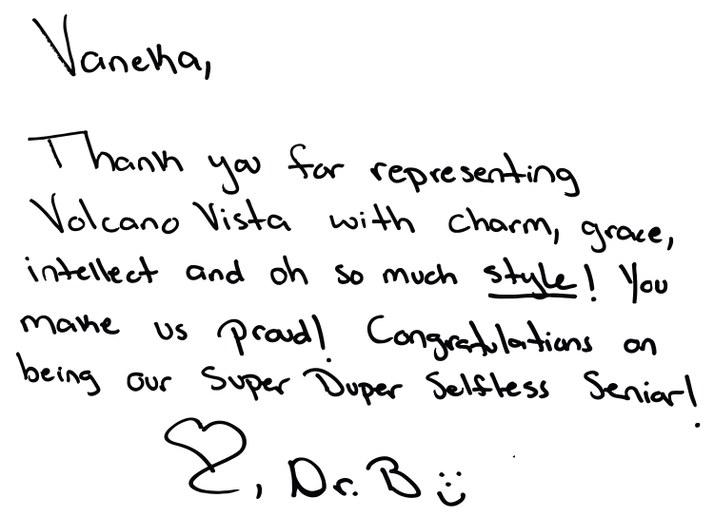 Vaneka,
Thank you for representing
Volcano Vista with charm, grace,
intellect and oh so much style! You
make us proud! Congratulations on
being our Super Duper Selfless Senior!
♡, Dr. B :)